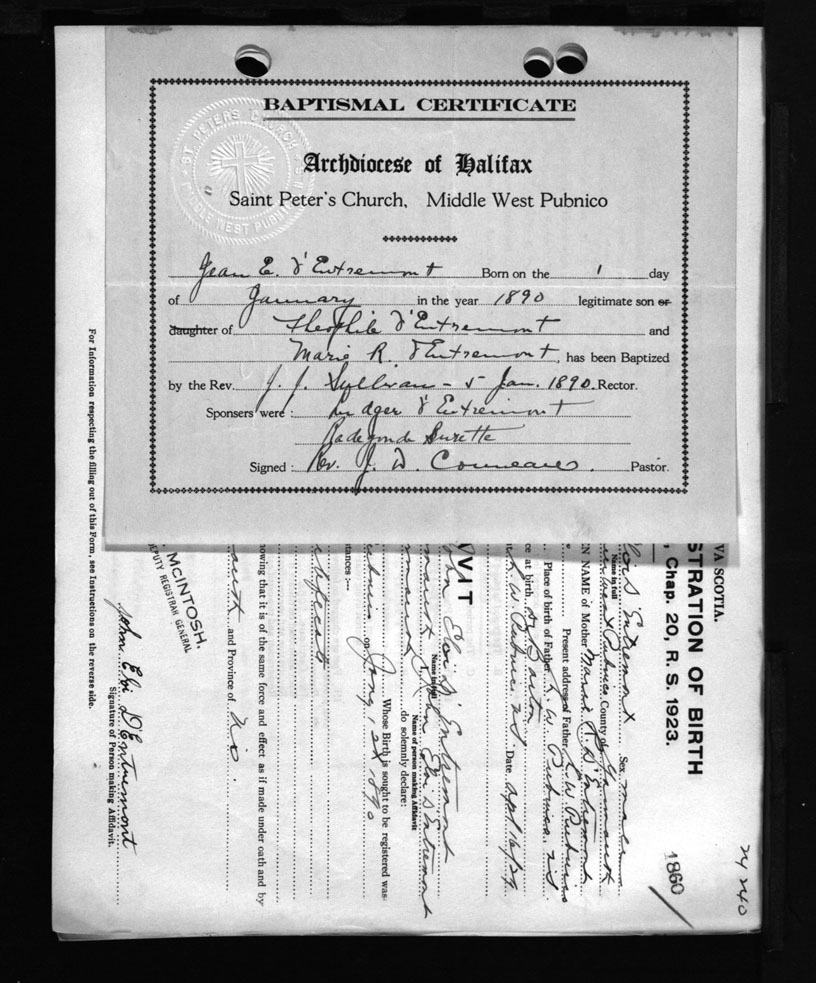 ST. PETERS CHURCH
MIDDLE WEST PUBNICO
BAPTISMAL CERTIFICATE
Archdiocese of Halifax
Saint Peter's Church, Middle West Pubnico
Jean E. d'Entremont Born on the 1 day
of January in the year 1890 legitimate son or
daughter of Theophile d'Entremont and
Marie R. d'Entremont, has been Baptized
by the Rev. J. J. Sullivan - 5 Jan. 1890. Rector.
Sponsers were: Ludger d'Entremont
Radegonde Surette
Signed: Rev. J. W. Comeau. Pastor.
VA SCOTIA.
STRATION OF BIRTH
, Chap. 20, R. S. 1923.
24240
1860
Name in full Sex male
County of Yarmouth
EN NAME of Mother Marie R. D'Entremont
Present address of Father L. W. Pubnico
Place of birth of Father L. W. Pubnico, NS
ce at birth
W. Pubnico NS Date Apl 16/
VIT
John Eloi D'Entremont
Name in full
I, John Eloi D'Entremont
Name of person making Affidavit
do solemnly declare:
Whose Birth is sought to be registered was
Pubnico on Jany 1st 1890
tances:—
nowing that it is of the same force and effect as if made under oath and by
and Province of N.S.
MCINTOSH,
DEPUTY REGISTRAR GENERAL
John Eloi D'Entremont
Signature of Person making Affidavit.
For Information respecting the filling out of this Form, see Instructions on the reverse side.